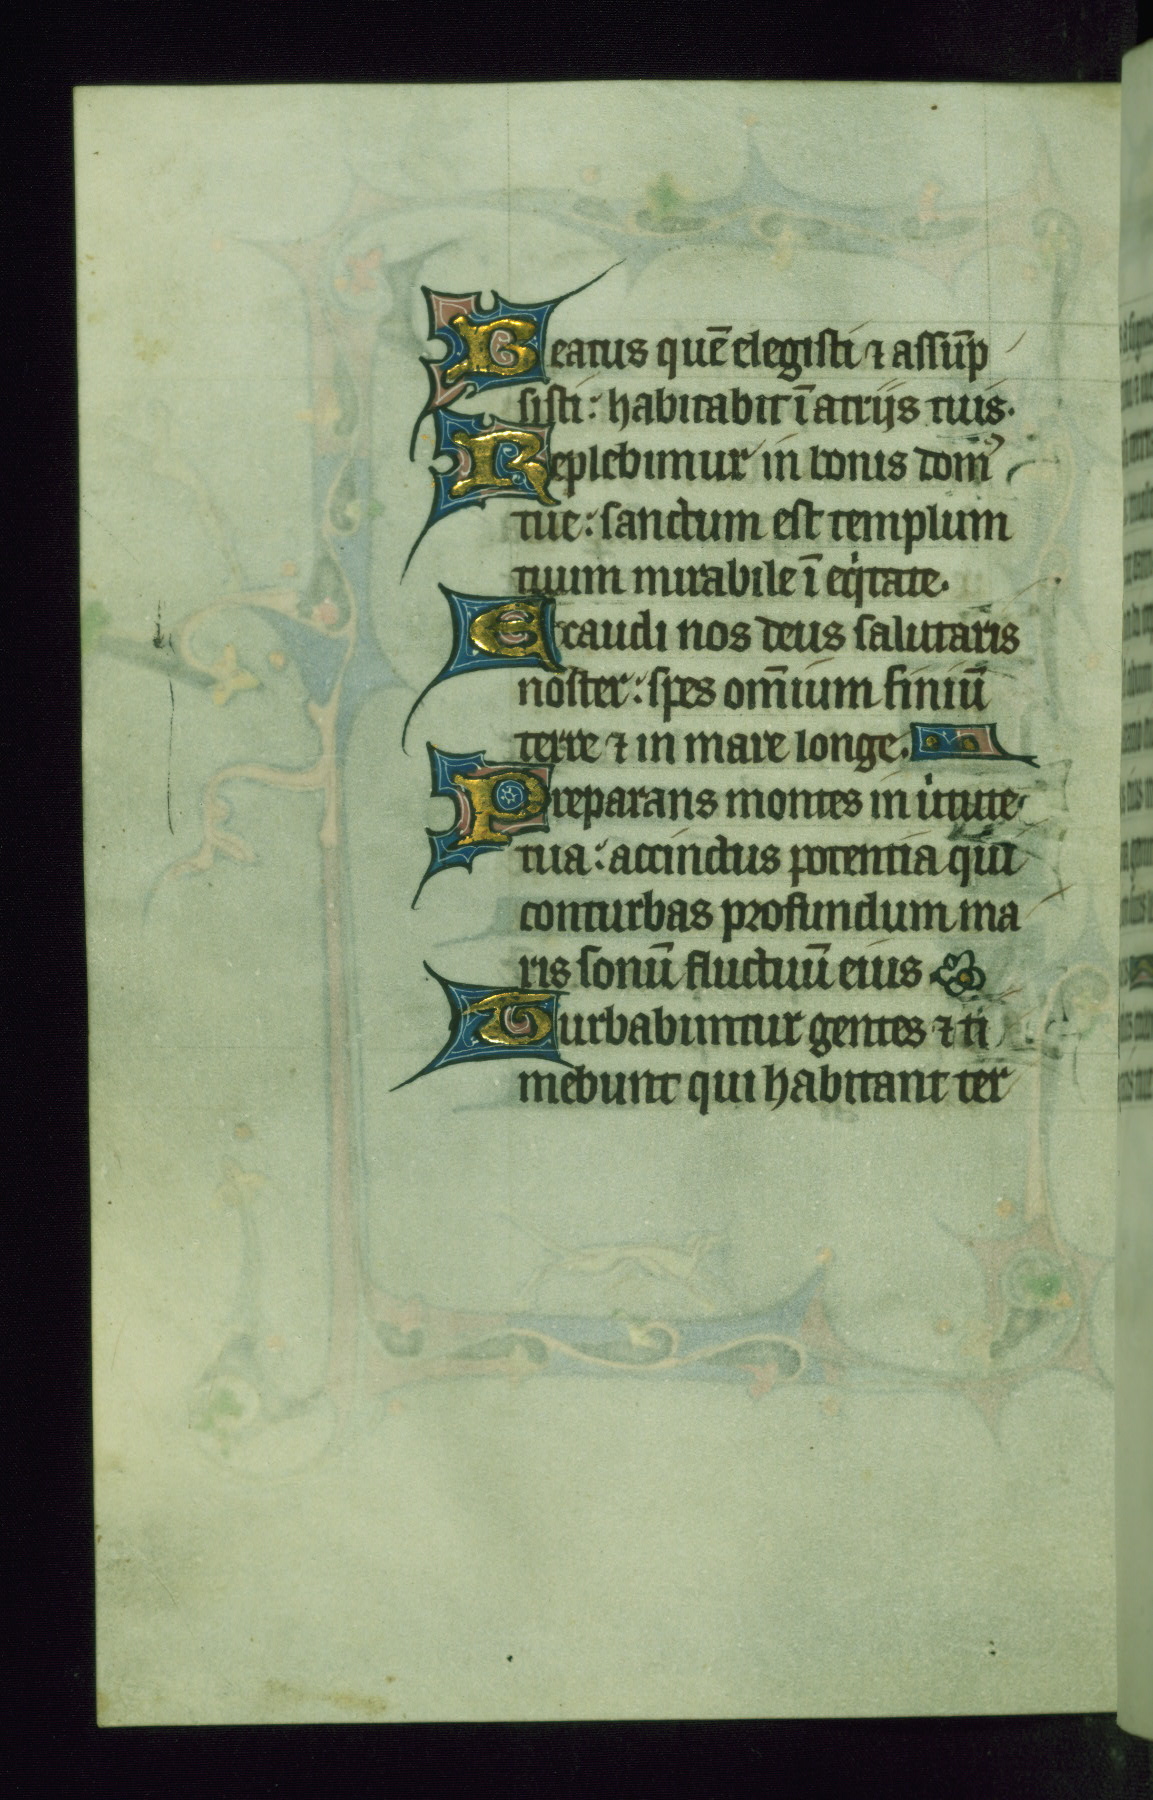 Beatus quē elegisti ⁊ assūp
sisti: habitabit ī atrijs tuis.
Replebimur in bonis domꝰ
tue: sanctum est templum
tuum mirabile ī eqͥtate.
Exaudi nos deus salutaris
noster: spes om̄ium finiū
terre ⁊ in mare longe.
Preparans montes in uͥtute
tua: accinctus potentia qui
conturbas profundum ma
ris sonū fluctuū eius
Turbabuntur gentes ⁊ ti
mebunt qui habitant ter